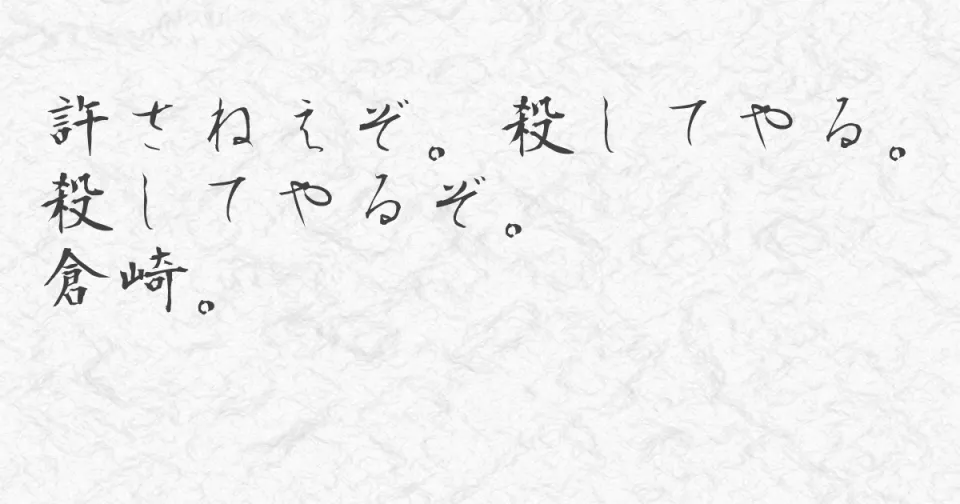 許さねえぞ。殺してやる。
殺してやるぞ。
倉崎。